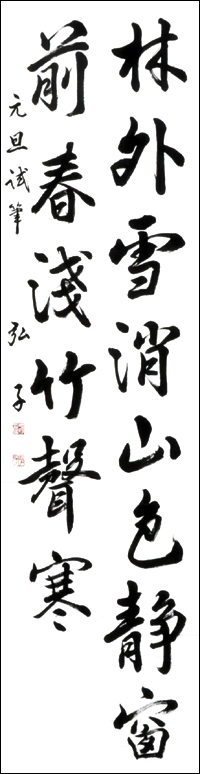 林外雪消山色静窗
前春淺竹聲寒
元旦試筆 弘子